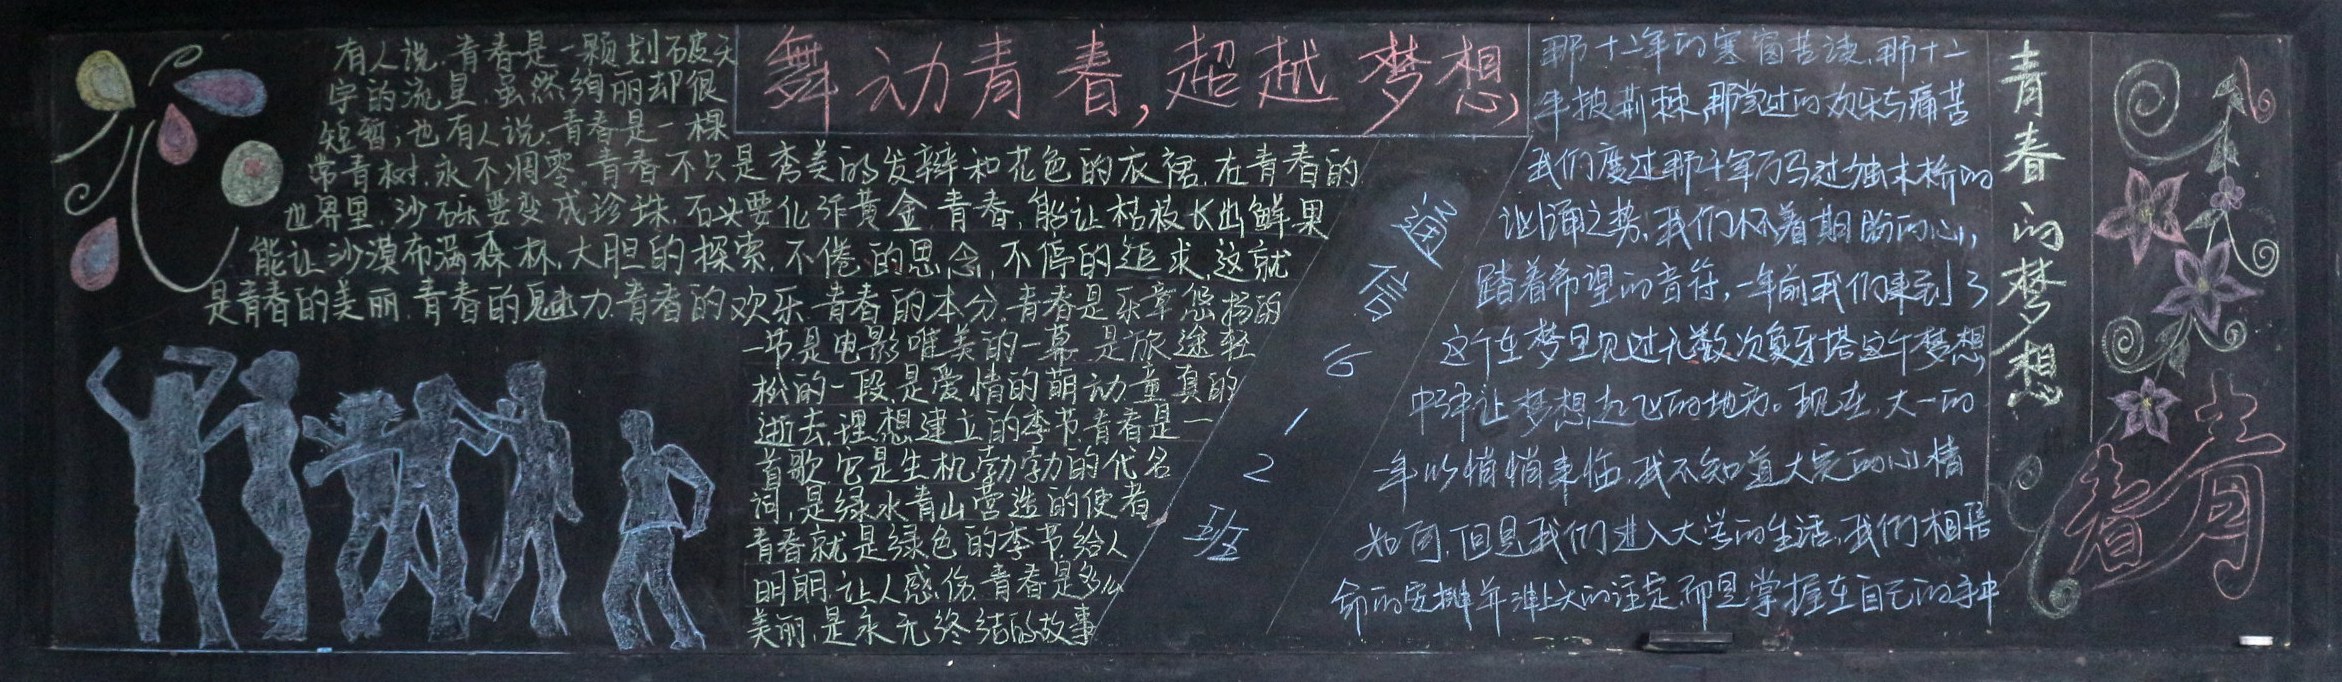 舞动青春,超越梦想
有人说,青春是一颗划破天
宇的流星,虽然绚丽却很
短暂;也有人说,青春是一棵
常青树,永不凋零,青春不只是秀美的发辫和花色的衣裙,在青春的
世界里,沙砾要变成珍珠,石头要化作黄金,青春,能让枯枝长出鲜果
能让沙漠布满森林,大胆的探索,不倦的思念,不停的追求,这就
是青春的美丽,青春的魅力,青春的欢乐,青春的本分,青春是乐章悠扬的
一节是电影唯美的一幕,是旅途轻
松的一段,是爱情的萌动童真的
逝去,理想建立的季节,青春是一
首歌,它是生机勃勃的代名
词,是绿水青山营造的使者
青春就是绿色的季节给人
明朗,让人感伤,青春是多么
美丽,是永无终结的故事
通
信
6
1
2
班
青春的梦想
那十二年的寒窗苦读,那十二
年披荆棘,那尝过的欢乐与痛苦
我们度过那千军万马过独木桥的
汹涌之势,我们怀着期盼的心,
踏着希望的音符,一年前我们来到了
这个在梦里见过无数次象牙塔这个梦想
中让梦想起飞的地方。现在,大一的
一年以悄悄来临,我不知道大家的心情
如何,但是我们进入大学的生活,我们相信
命的安排并非上天的注定,而是掌握在自己的手中
青
春